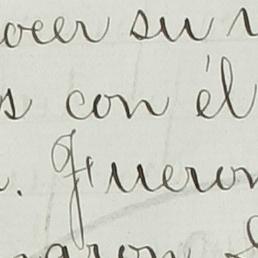 ocer su
s con él
. Fueron